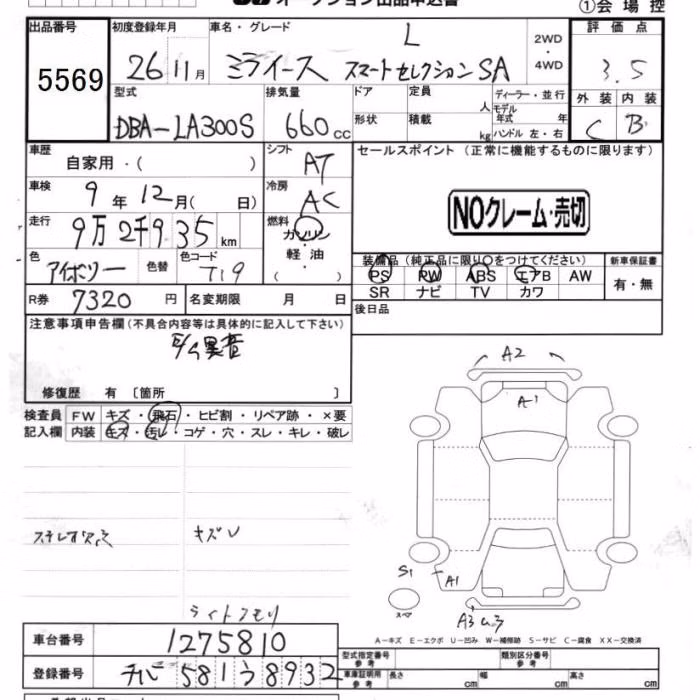 オークション出品申込書
①会場控
出品番号 初度登録年月 車名・グレード 評価点
5569 26 11月 ミライース L スマートセレクションSA 2WD・4WD 3.5
型式 排気量 ドア 定員 人 ディーラー・並行 外装 内装
DBA-LA300S 660cc 形状 積載 kg モデル年式 年 ハンドル 左・右 C B
車歴 自家用・( ) シフト AT セールスポイント(正常に機能するものに限ります)
車検 9年12月( 日) 冷房 AC
NOクレーム・売切
走行 9万2千935km 燃料 ガソリン・軽油・( )
色 アイボリー 色替 色コード T19
装備品(純正品に限り○をつけてください) 新車保証書
PS PW ABS エアB AW 有・無
SR ナビ TV カワ
R券 7320円 名変期限 月 日
後日品
注意事項申告欄(不具合内容等は具体的に記入して下さい)
異音
修復歴 有〔箇所 〕
検査員 FW キズ・飛石・ヒビ割・リペア跡・×要
記入欄 内装 キズ・汚レ・コゲ・穴・スレ・キレ・破レ
A2
A-1
ステレオ欠品 キズU
S1 A1
スペア
A3 U3
ライトクモリ
A-キズ E-エクボ U-凹み W-補修跡 S-サビ C-腐食 XX-交換済
車台番号 1275810
型式指定番号 参考 類別区分番号 参考
登録番号 チバ 581 う 8932
車庫証明用 参考 長さ cm 幅 cm 高さ cm